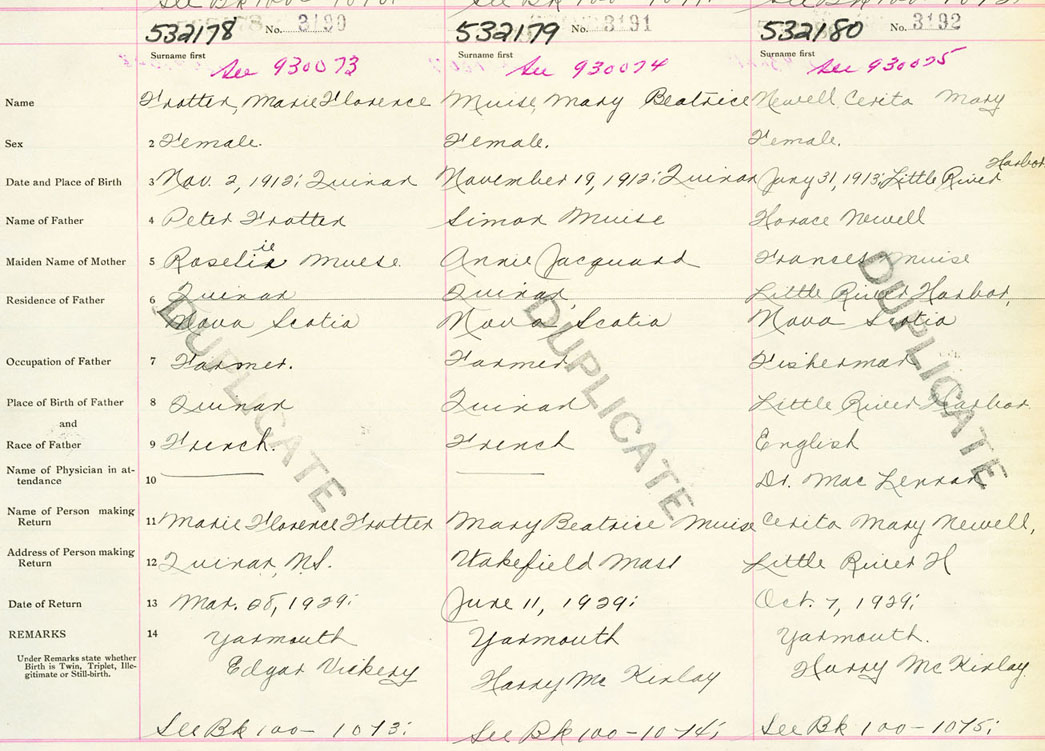 532178 No. 3190
Surname first
See 930073
532179 No. 3191
Surname first
See 930074
532180 No. 3192
Surname first
See 930075
Name
Trotter, Marie Florence
Muise, Mary Beatrice
Newell, Cerita Mary
Sex
2 Female.
Female.
Female.
Date and Place of Birth
3 Nov. 2, 1912; Quinan
November 19, 1912; Quinan
Jany 31, 1913; Little River Harbor
Name of Father
4 Peter Trotter
Simon Muise
Horace Newell
Maiden Name of Mother
5 Muise.
Annie Jacquard
Frances Muise
Residence of Father
6 Quinan
Nova Scotia
Quinan,
Nova Scotia
Little River Harbor,
Nova Scotia
Occupation of Father
7 Farmer.
Farmer
Fisherman
Place of Birth of Father
8 Quinan
Quinan
Little River Harbor.
and
Race of Father
9 French.
French
English
Name of Physician in at-
tendance
10
Dr. Mac Lennan
Name of Person making
Return
11 Marie Florence Trotter
Mary Beatrice Muise
Cerita Mary Newell,
Address of Person making
Return
12 Quinan, N.S.
Wakefield Mass
Little River H
Date of Return
13 Mar. 1929;
June 11, 1929;
Oct. 7, 1929;
REMARKS
14 Yarmouth
Yarmouth
Yarmouth.
Under Remarks state whether
Birth is Twin, Triplet, Ille-
gitimate or Still-birth.
Edgar Vickery
Harry McKinlay
Harry McKinlay
See Bk 100 - 1073;
See Bk 100 - 1074;
See Bk 100 - 1075;
DUPLICATE
DUPLICATE
DUPLICATE